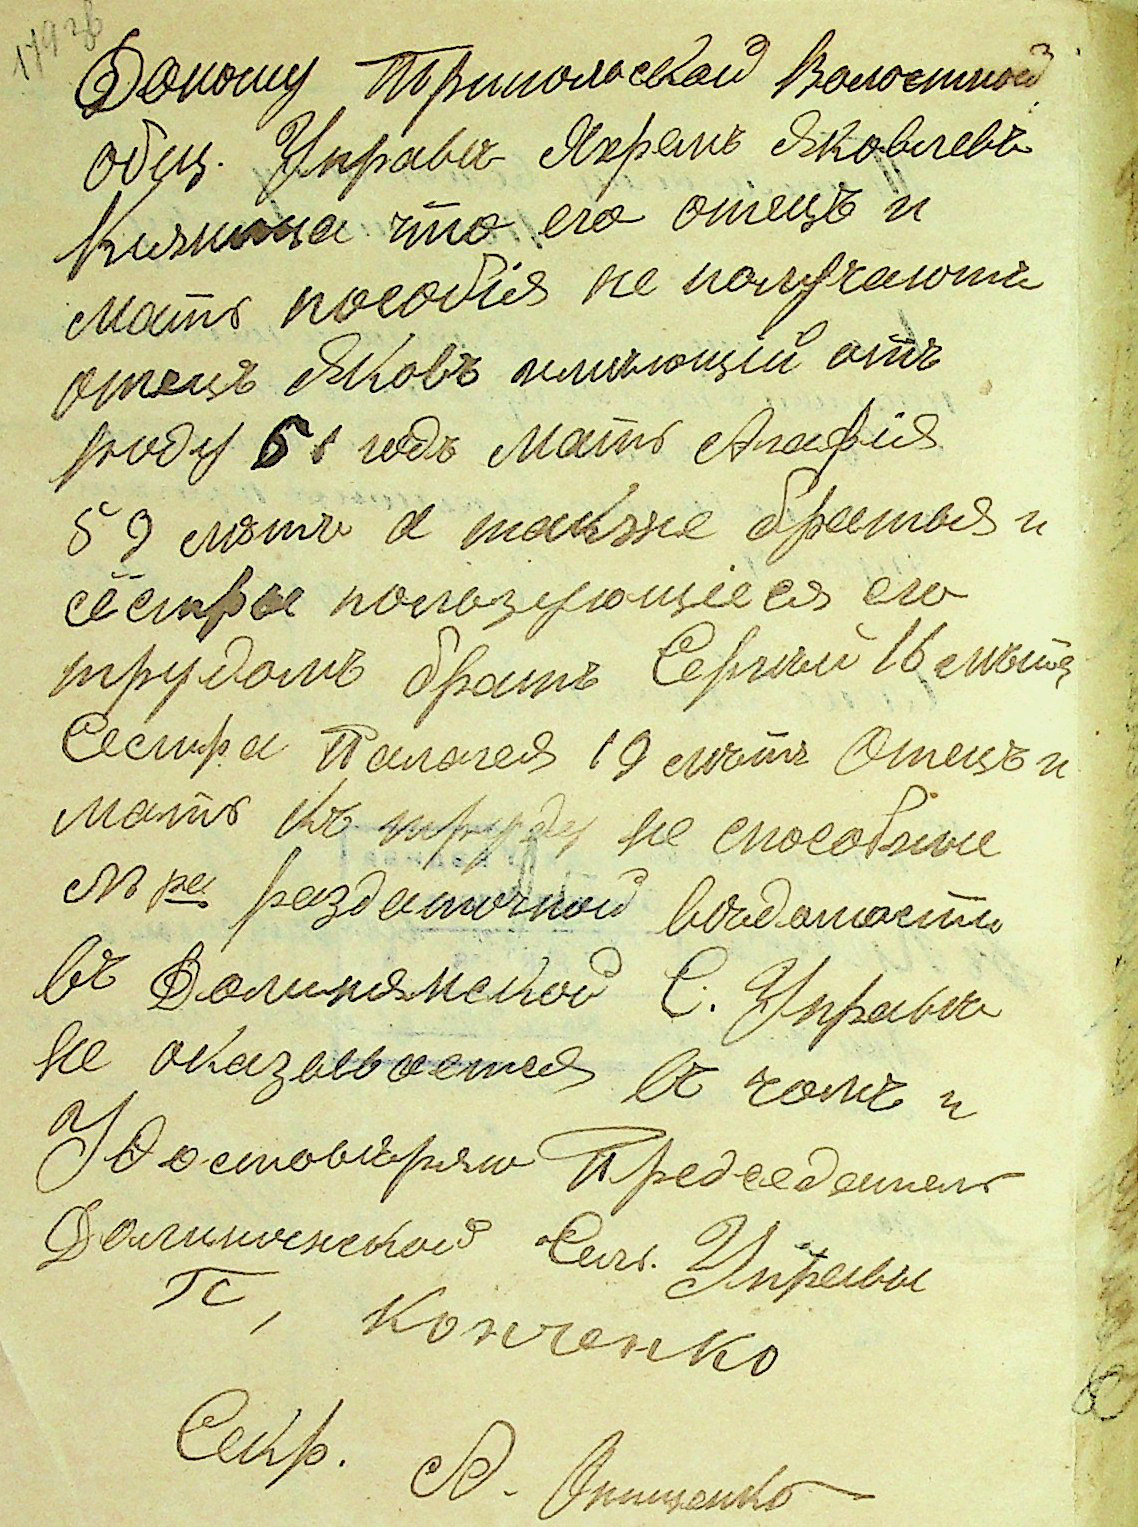 Доношу Трипольской Волостной
общ. Управе Яхремъ Яковлевъ
что его отецъ и
мать пособія не получаютъ
отецъ Яковъ имеющій отъ
роду 61 годъ мать Агафія
59 летъ а также братья и
сестры пользующіеся его
трудомъ братъ Сергей 16 летъ
Сестра Палагея 19 летъ Отецъ и
мать къ труду не способные
раздаточной ведомости
въ Долинянской С. Управе
не оказывается въ чомъ и
Удостоверяю Председатель
Долинянской Сель. Управы
П, Конченко
Секр. А. Онищенко